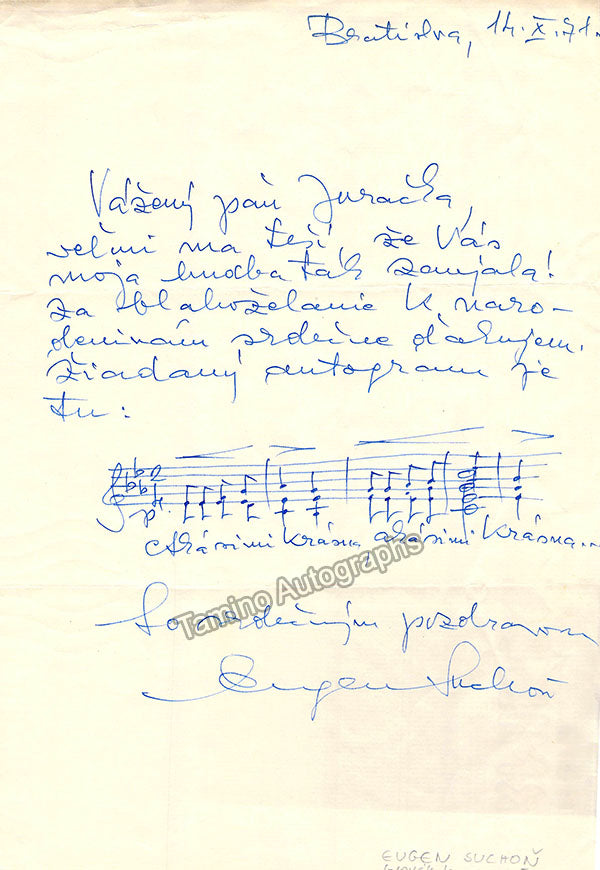 Bratislva, 14.X.71.
Vážený pán Juračka,
veľmi ma teší, že Vás
moja hudba tak zaujala!
Za blahoželanie k naro-
deninám srdečne ďakujem.
Žiadaný autogram je
tu:
2
p
Aká si mi krásna aká si mi krásna...
So srdečným pozdravom
Eugen Suchoň
Tamino Autographs
EUGEN SUCHOŇ